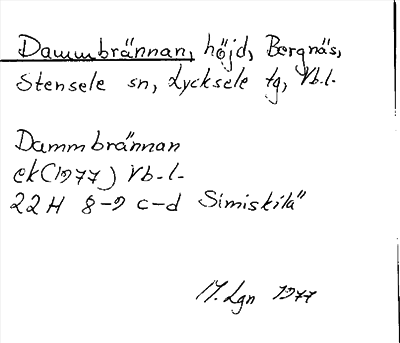 Dammbrännan, höjd, Bergnäs,
Stensele sn, Lycksele tg, Vb.l.
Dammbrännan
ek(1977) Vb-l-
22H 8-9 c-d Simiskilä
Lgn 1977